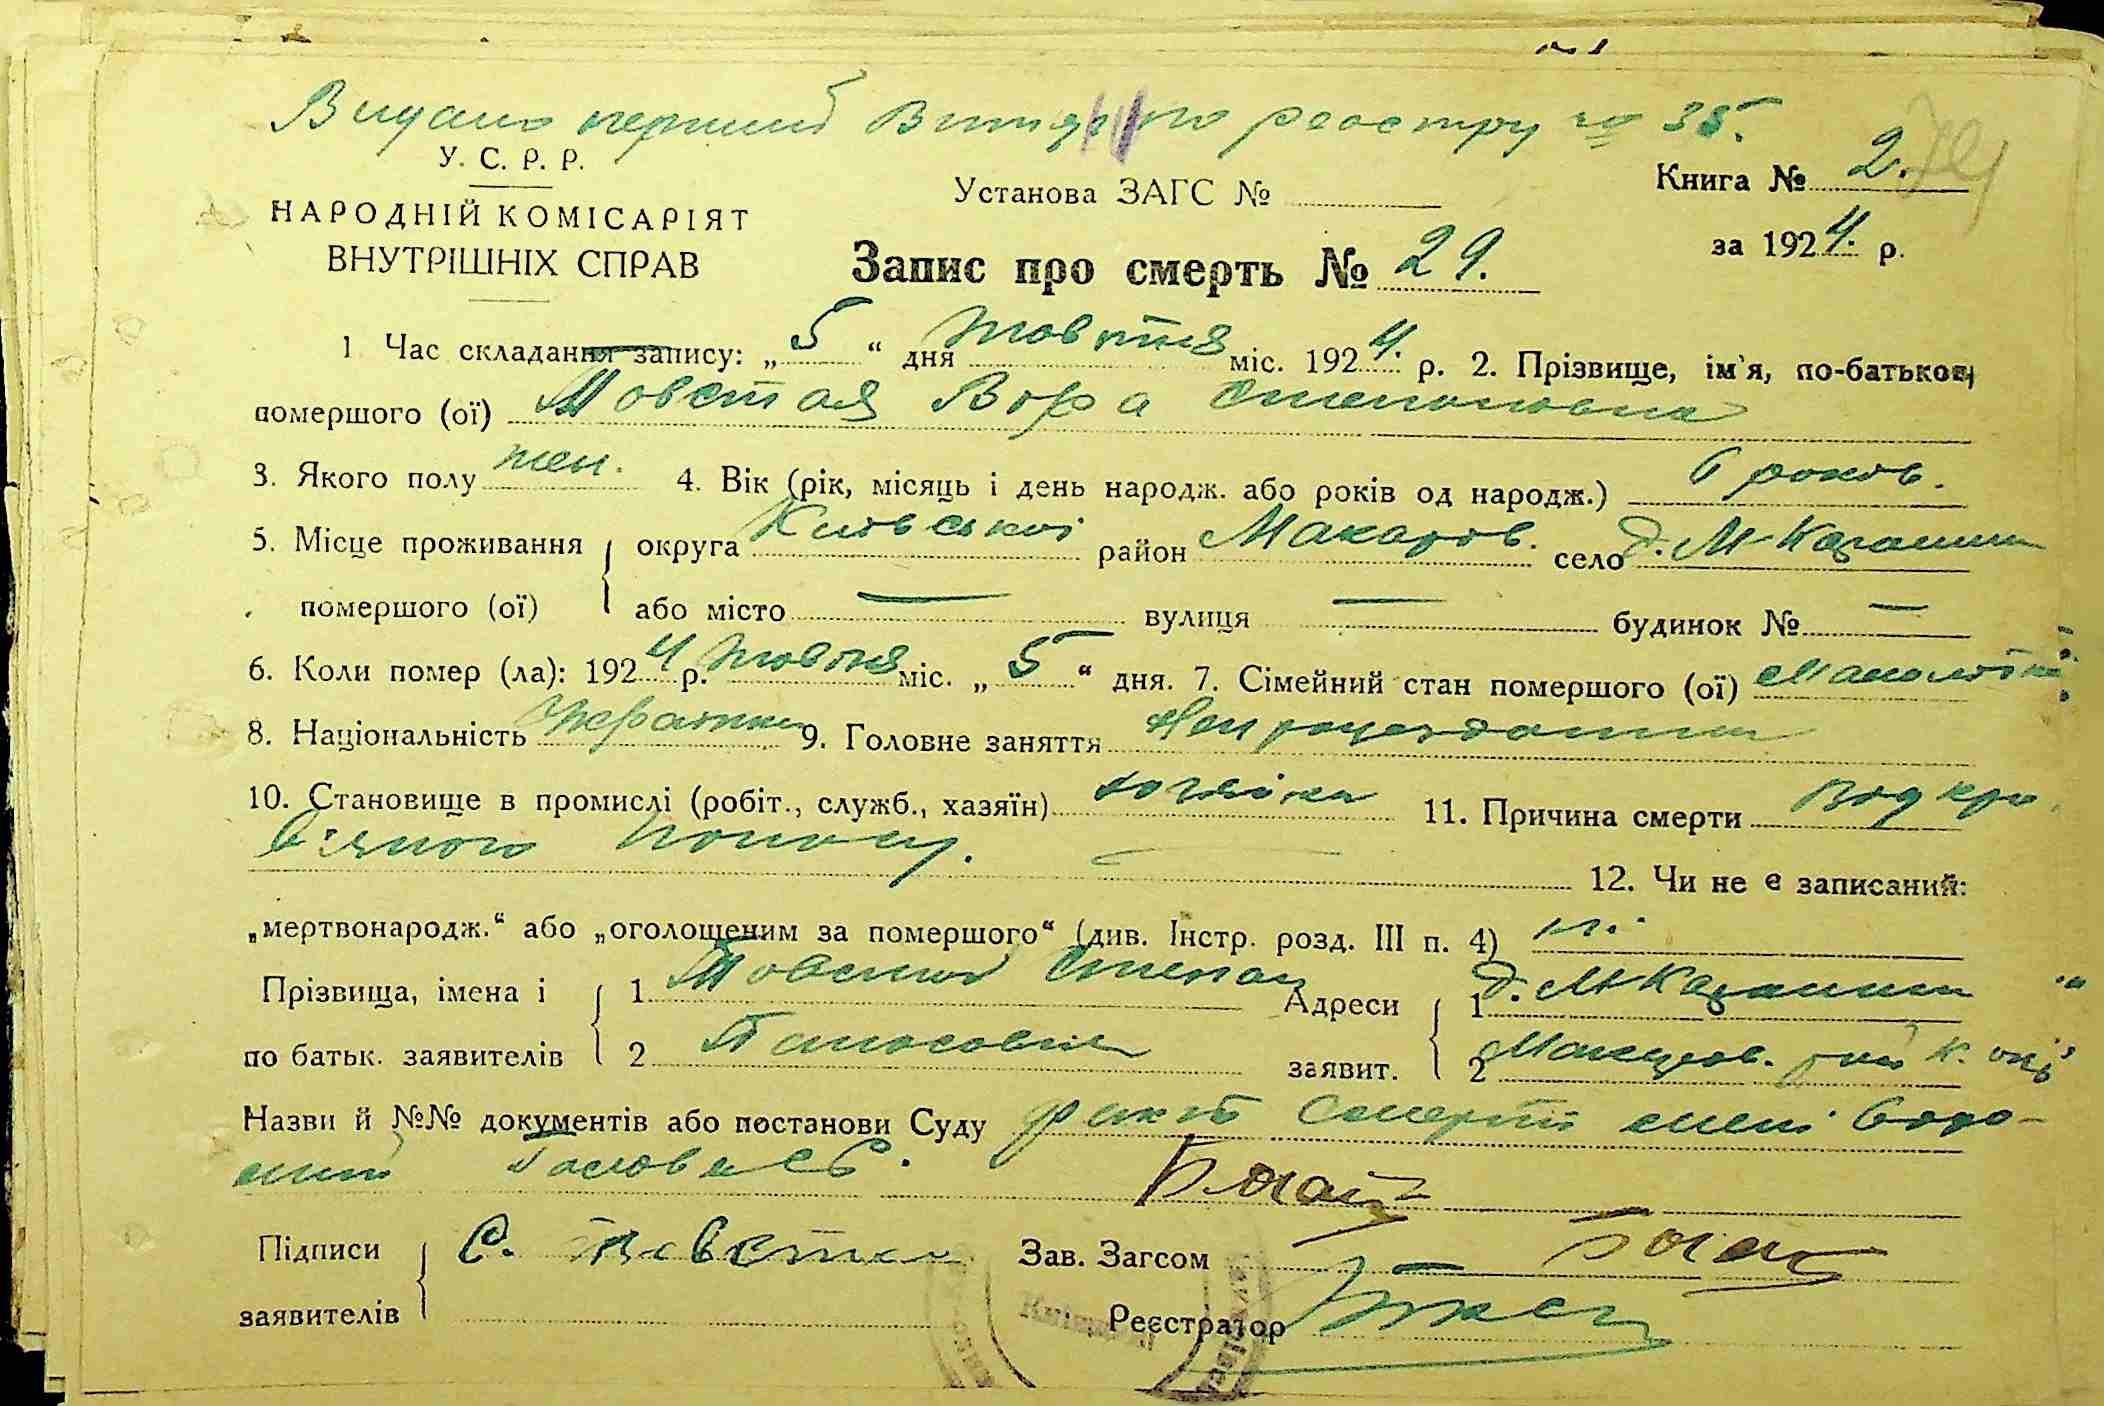 Видано перший Витяг по реестру № 35.
У. С. Р. Р.
НАРОДНІЙ КОМІСАРІЯТ
ВНУТРІШНІХ СПРАВ
Установа ЗАГС №
Книга № 2.
за 1924. р.
Запис про смерть № 29.
1 Час складання запису: „5“ дня Жовтня міс. 1924. р. 2. Прізвище, ім'я, по-батькові
помершого (ої) Товстая Вера Степановна
3. Якого полу жен. 4. Вік (рік, місяць і день народж. або років од народж.) 6 роков.
5. Місце проживання округа Київської район Макаров. село д. М-Карашин
помершого (ої) або місто — вулиця — будинок № —
6. Коли помер (ла): 1924 р. Жовтня міс. „5“ дня. 7. Сімейний стан помершого (ої) Малолітня
8. Національність Украинка 9. Головне заняття
10. Становище в промислі (робіт., служб., хазяїн) хазяіка 11. Причина смерти від кро-
в'яного поносу.
12. Чи не є записаний:
„мертвонародж.“ або „оголошеним за помершого“ (див. Інстр. розд. III п. 4) ні.
Прізвища, імена і 1 Товстий Степан Адреси 1 д. М-Карашин
по батьк. заявителів 2 Панасович заявит. 2 Макаров. рай К. окр.
Назви й №№ документів або постанови Суду факт смерти мені відо-
мий Голова С/Р.
Підписи С. Товстий Зав. Загсом
заявителів Реєстратор